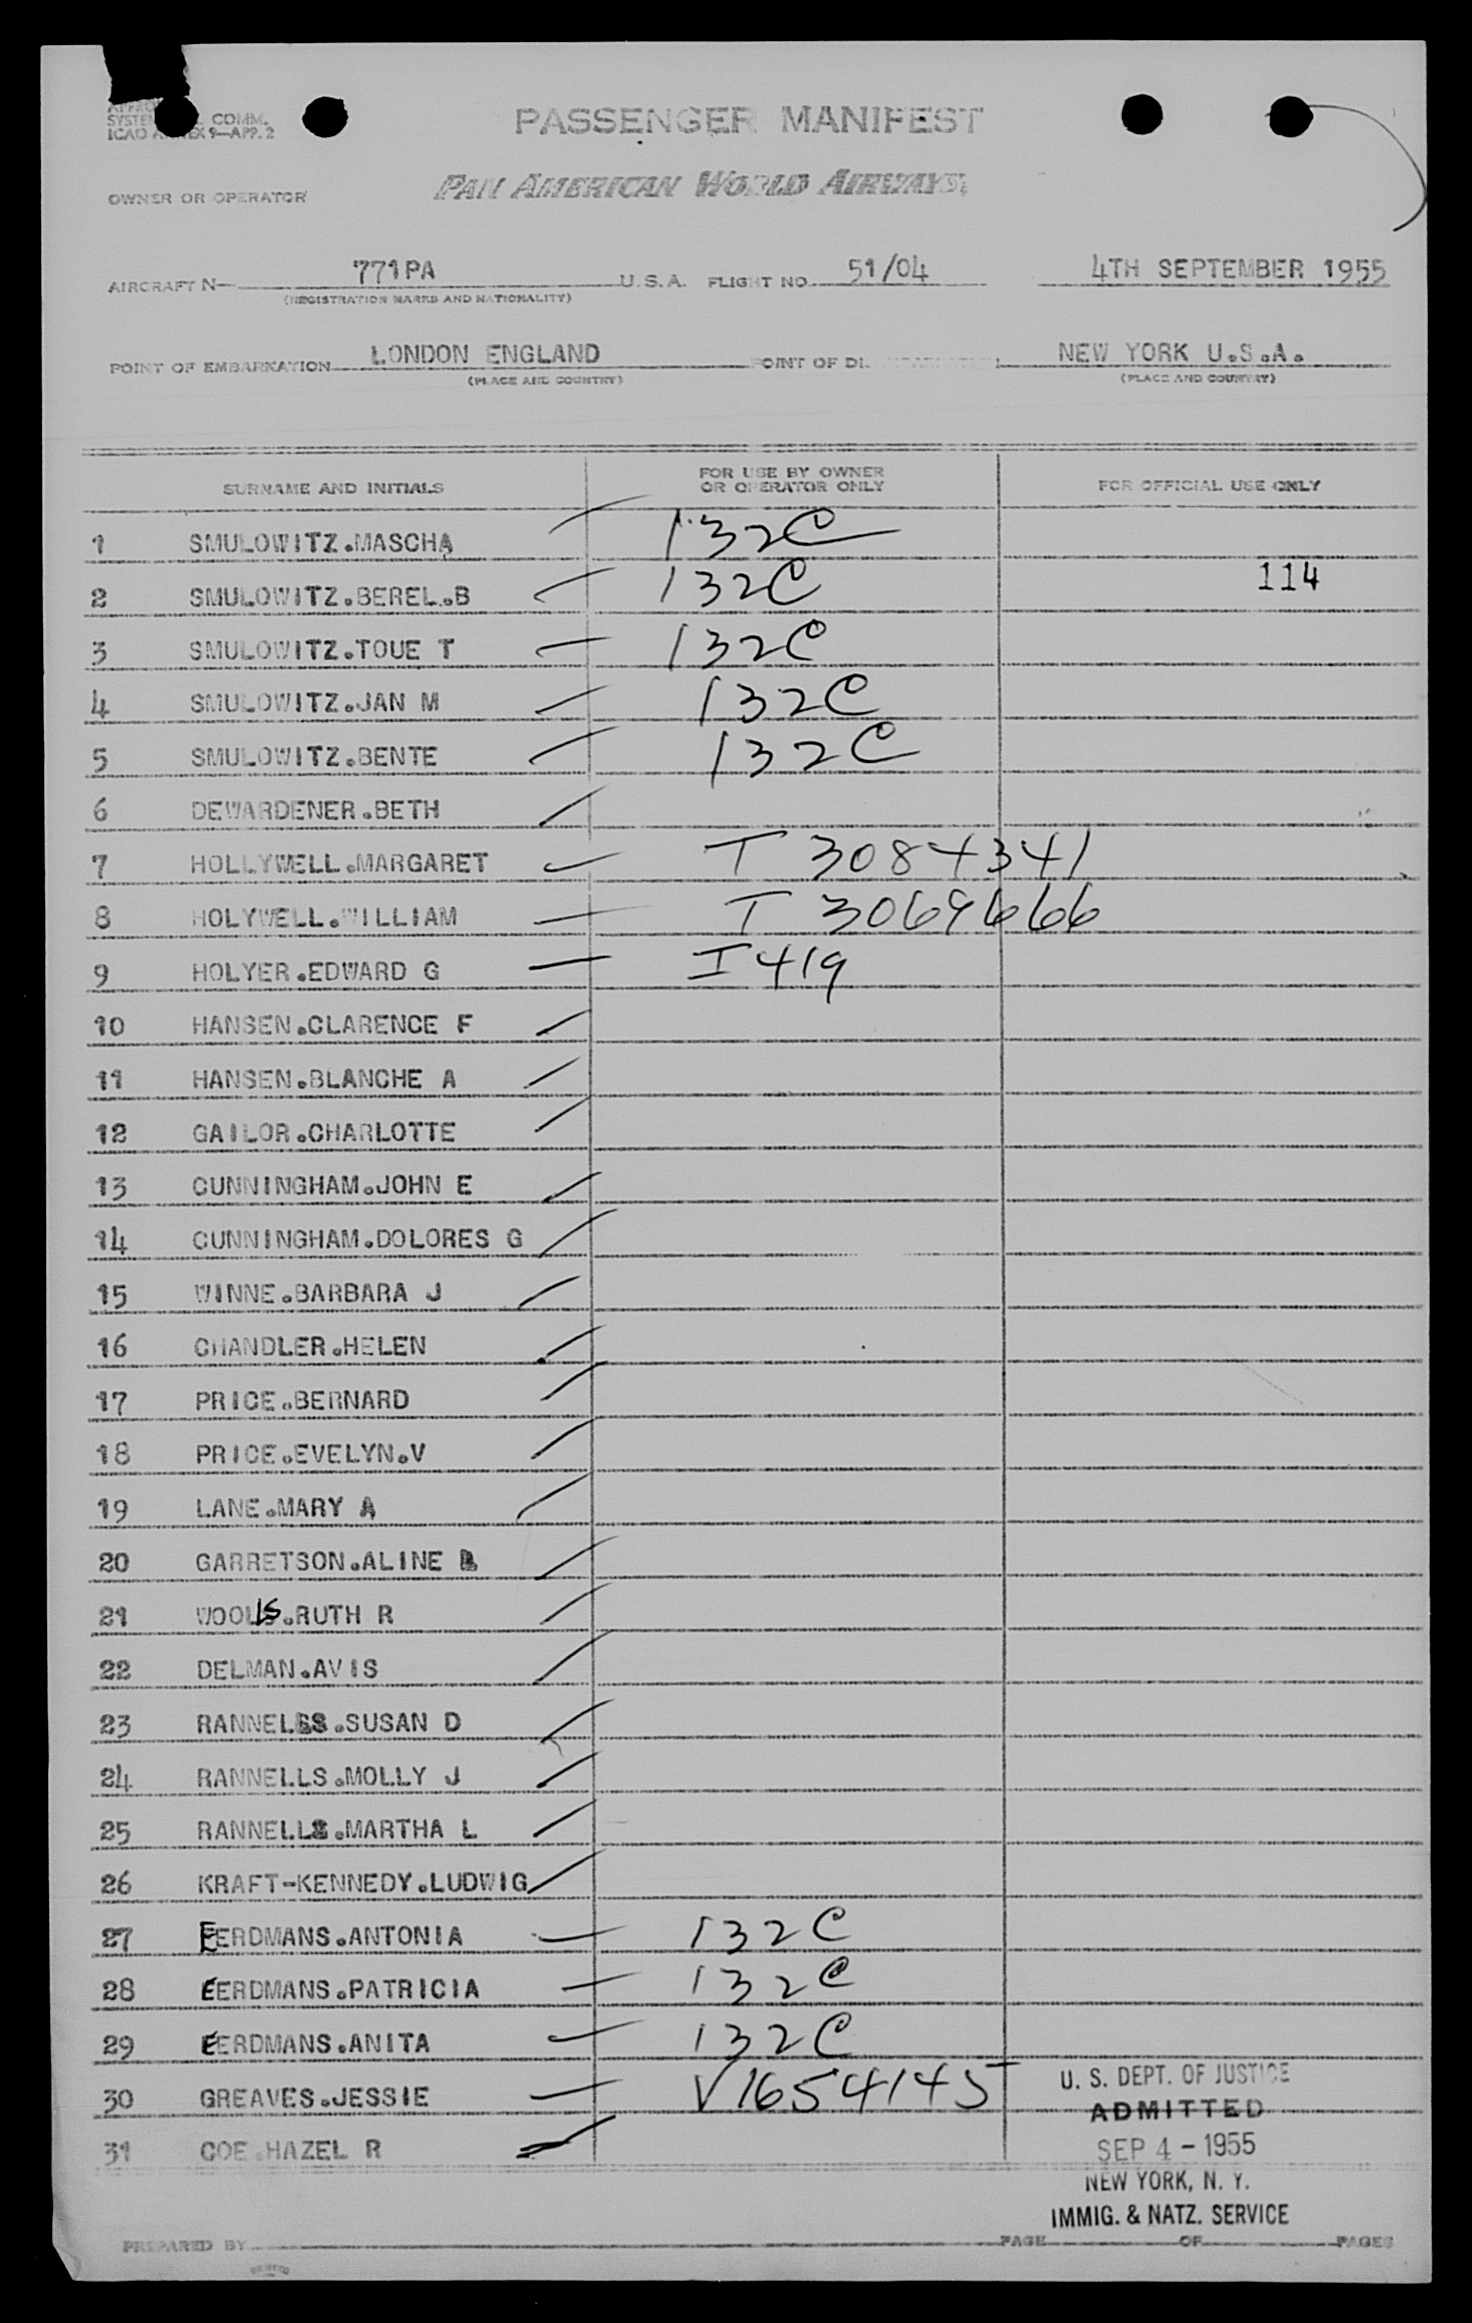 COMM.
ICAO ANNEX 9—APP. 2
PASSENGER MANIFEST
OWNER OR OPERATOR
PAN AMERICAN WORLD AIRWAYS,
AIRCRAFT N— 771PA U.S.A. FLIGHT NO. 51/04 4TH SEPTEMBER 1955
(REGISTRATION MARKS AND NATIONALITY)
POINT OF EMBARKATION LONDON ENGLAND POINT OF DI NEW YORK U.S.A.
(PLACE AND COUNTRY) (PLACE AND COUNTRY)
SURNAME AND INITIALS FOR USE BY OWNER OR OPERATOR ONLY FOR OFFICIAL USE ONLY
1 SMULOWITZ.MASCHA 132C
2 SMULOWITZ.BEREL.B 132C 114
3 SMULOWITZ.TOUE T 132C
4 SMULOWITZ.JAN M 132C
5 SMULOWITZ.BENTE 132C
6 DEWARDENER.BETH
7 HOLLYWELL.MARGARET T 3084341
8 HOLYWELL.WILLIAM T 3069666
9 HOLYER.EDWARD G I419
10 HANSEN.CLARENCE F
11 HANSEN.BLANCHE A
12 GAILOR.CHARLOTTE
13 CUNNINGHAM.JOHN E
14 CUNNINGHAM.DOLORES G
15 WINNE.BARBARA J
16 CHANDLER.HELEN
17 PRICE.BERNARD
18 PRICE.EVELYN.V
19 LANE.MARY A
20 GARRETSON.ALINE
21 WOOLLS.RUTH R
22 DELMAN.AVIS
23 RANNELLS.SUSAN D
24 RANNELLS.MOLLY J
25 RANNELLS.MARTHA L
26 KRAFT-KENNEDY.LUDWIG
27 EERDMANS.ANTONIA 132C
28 EERDMANS.PATRICIA 132C
29 EERDMANS.ANITA 132C
30 GREAVES.JESSIE V1654145
31 COE.HAZEL R
U. S. DEPT. OF JUSTICE
ADMITTED
SEP 4 - 1955
NEW YORK, N. Y.
IMMIG. & NATZ. SERVICE
PREPARED BY PAGE OF PAGES